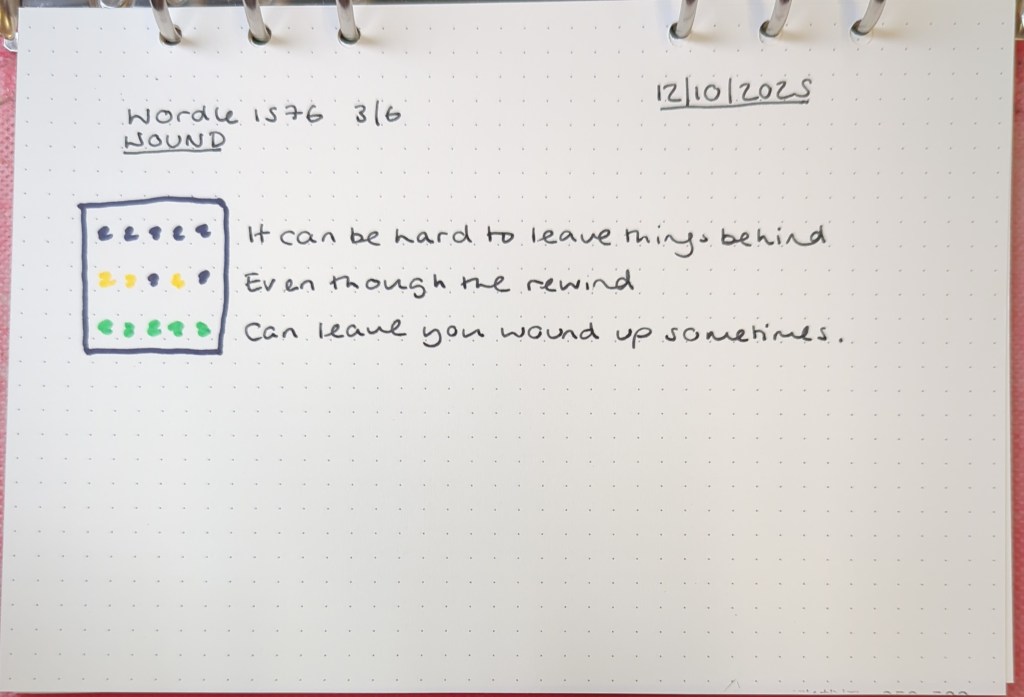 12/10/2025
Wordle 1576 3/6
WOUND
It can be hard to leave things behind
Even though the rewind
Can leave you wound up sometimes.